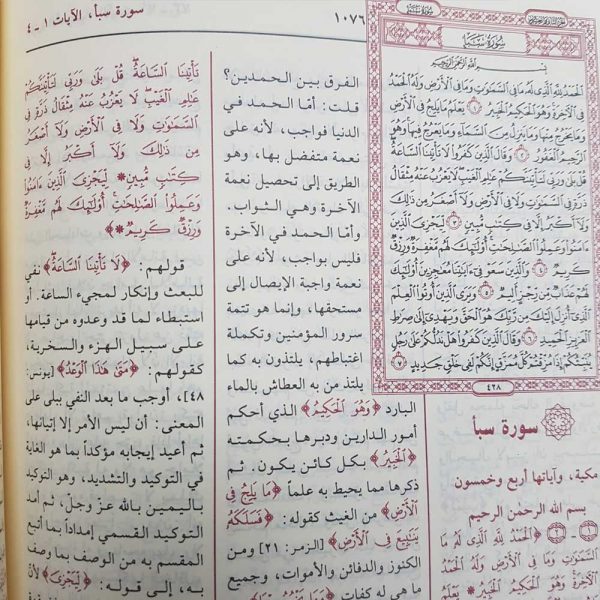 سورة سبأ، الآيات ١ـ٤
١٠٧٦
سُورَةُ سَبَإٍ
ٱلْحَمْدُ لِلَّهِ ٱلَّذِى لَهُۥ مَا فِى ٱلسَّمَٰوَٰتِ وَمَا فِى ٱلْأَرْضِ وَلَهُ ٱلْحَمْدُ
فِى ٱلْءَاخِرَةِ وَهُوَ ٱلْحَكِيمُ ٱلْخَبِيرُ ١ يَعْلَمُ مَا يَلِجُ فِى ٱلْأَرْضِ
وَمَا يَخْرُجُ مِنْهَا وَمَا يَنزِلُ مِنَ ٱلسَّمَآءِ وَمَا يَعْرُجُ فِيهَا وَهُوَ
ٱلرَّحِيمُ ٱلْغَفُورُ ٢ وَقَالَ ٱلَّذِينَ كَفَرُوا۟ لَا تَأْتِينَا ٱلسَّاعَةُ
قُلْ بَلَىٰ وَرَبِّى لَتَأْتِيَنَّكُمْ عَٰلِمِ ٱلْغَيْبِ لَا يَعْزُبُ عَنْهُ مِثْقَالُ
ذَرَّةٍ فِى ٱلسَّمَٰوَٰتِ وَلَا فِى ٱلْأَرْضِ وَلَآ أَصْغَرُ مِن ذَٰلِكَ
وَلَآ أَكْبَرُ إِلَّا فِى كِتَٰبٍ مُّبِينٍ ٣ لِّيَجْزِىَ ٱلَّذِينَ
ءَامَنُوا۟ وَعَمِلُوا۟ ٱلصَّٰلِحَٰتِ أُو۟لَٰٓئِكَ لَهُم مَّغْفِرَةٌ وَرِزْقٌ
كَرِيمٌ ٤ وَٱلَّذِينَ سَعَوْ فِىٓ ءَايَٰتِنَا مُعَٰجِزِينَ أُو۟لَٰٓئِكَ
لَهُمْ عَذَابٌ مِّن رِّجْزٍ أَلِيمٌ ٥ وَيَرَى ٱلَّذِينَ أُوتُوا۟ ٱلْعِلْمَ
ٱلَّذِىٓ أُنزِلَ إِلَيْكَ مِن رَّبِّكَ هُوَ ٱلْحَقَّ وَيَهْدِىٓ إِلَىٰ صِرَٰطِ
ٱلْعَزِيزِ ٱلْحَمِيدِ ٦ وَقَالَ ٱلَّذِينَ كَفَرُوا۟ هَلْ نَدُلُّكُمْ عَلَىٰ رَجُلٍ
يُنَبِّئُكُمْ إِذَا مُزِّقْتُمْ كُلَّ مُمَزَّقٍ إِنَّكُمْ لَفِى خَلْقٍ جَدِيدٍ ٧
٤٢٨
سورة سبأ
مكية، وآياتها أربع وخمسون
بسم الله الرحمٰن الرحيم
﴿ٱلْحَمْدُ لِلَّهِ ٱلَّذِى لَهُۥ مَا
فِى ٱلسَّمَٰوَٰتِ وَمَا فِى ٱلْأَرْضِ وَلَهُ ٱلْحَمْدُ
فِى ٱلْءَاخِرَةِ وَهُوَ ٱلْحَكِيمُ ٱلْخَبِيرُ * يَعْلَمُ
الفرق بين الحمدين؟
قلت: أمّا الحمد في
الدنيا فواجب، لأنه على
نعمة متفضل بها، وهو
الطريق إلى تحصيل نعمة
الآخرة وهي الثواب.
وأمّا الحمد في الآخرة
فليس بواجب، لأنه على
نعمة واجبة الإيصال إلى
مستحقها، وإنما هو تتمة
سرور المؤمنين وتكملة
اغتباطهم، يلتذون به كما
يلتذ من به العطاش بالماء
البارد ﴿وَهُوَ ٱلْحَكِيمُ﴾ الذي أحكم
أمور الدارين ودبرها بحكمته
﴿ٱلْخَبِيرُ﴾ بكل كائن يكون. ثم
ذكرها مما يحيط به علماً ﴿مَا يَلِجُ فِى
ٱلْأَرْضِ﴾ من الغيث كقوله: ﴿فَسَلَكَهُۥ
يَنَٰبِيعَ فِى ٱلْأَرْضِ﴾ [الزمر: ٢١] ومن
الكنوز والدفائن والأموات، وجميع
ما هي له كفات ﴿وَمَا يَخْرُجُ مِنْهَا﴾
تَأْتِينَا ٱلسَّاعَةُ قُلْ بَلَىٰ وَرَبِّى لَتَأْتِيَنَّكُمْ
عَٰلِمِ ٱلْغَيْبِ لَا يَعْزُبُ عَنْهُ مِثْقَالُ ذَرَّةٍ فِى
ٱلسَّمَٰوَٰتِ وَلَا فِى ٱلْأَرْضِ وَلَآ أَصْغَرُ
مِن ذَٰلِكَ وَلَآ أَكْبَرُ إِلَّا فِى
كِتَٰبٍ مُّبِينٍ * لِّيَجْزِىَ ٱلَّذِينَ ءَامَنُوا۟
وَعَمِلُوا۟ ٱلصَّٰلِحَٰتِ أُو۟لَٰٓئِكَ لَهُم مَّغْفِرَةٌ
وَرِزْقٌ كَرِيمٌ *﴾
قولهم: ﴿لَا تَأْتِينَا ٱلسَّاعَةُ﴾ نفي
للبعث وإنكار لمجيء الساعة. أو
استبطاء لما قد وعدوه من قيامها
على سبيل الهزء والسخرية،
كقولهم: ﴿مَتَىٰ هَٰذَا ٱلْوَعْدُ﴾ [يونس:
٤٨]، أوجب ما بعد النفي ببلى على
المعنى: أن ليس الأمر إلا إتيانها،
ثم أعيد إيجابه مؤكداً بما هو الغاية
في التوكيد والتشديد، وهو التوكيد
باليمين بالله عزّ وجلّ، ثم أمد
التوكيد القسمي إمداداً بما أتبع
المقسم به من الوصف بما وصف
به، إلى قوله: ﴿لِيَجْزِىَ﴾ لأنّ